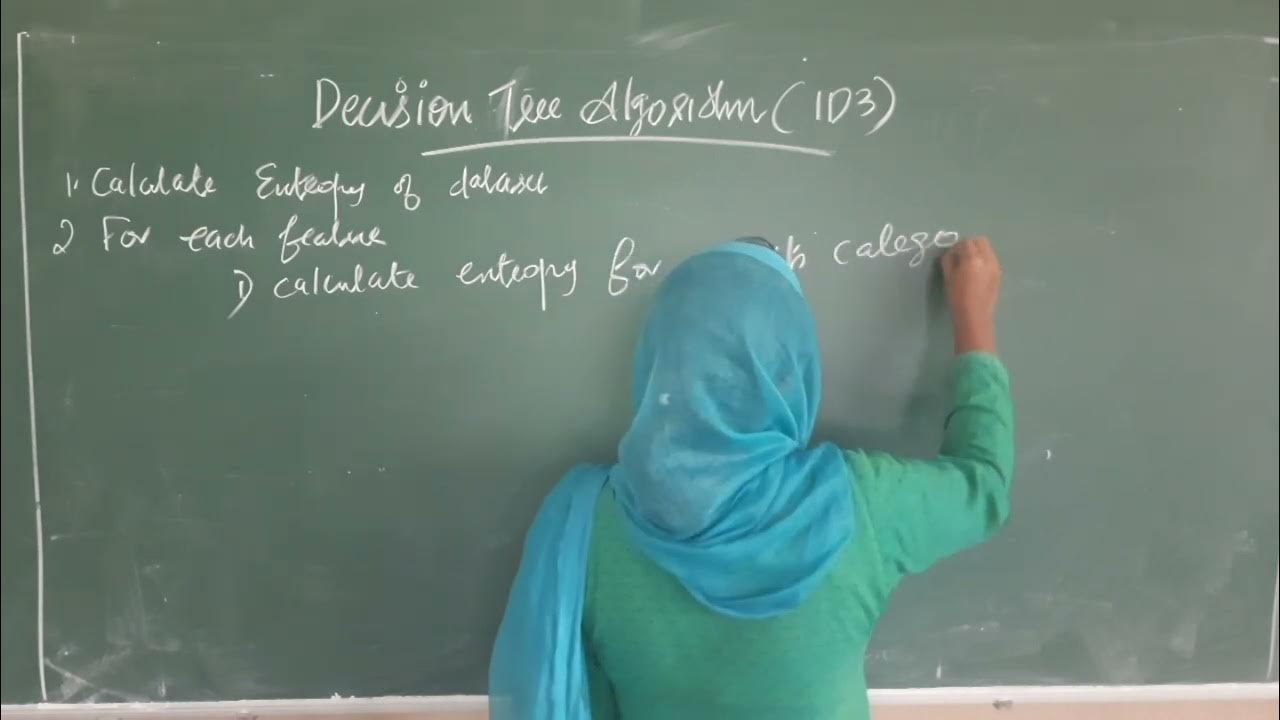 Decision Tree Algorithm (ID3)
1. Calculate Entropy of dataset
2 For each feature
1) calculate entropy for its catego